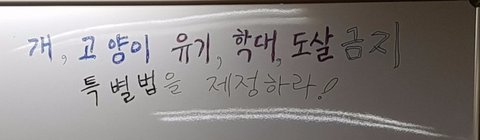 개, 고양이 유기, 학대, 도살 금지
특별법을 제정하라!